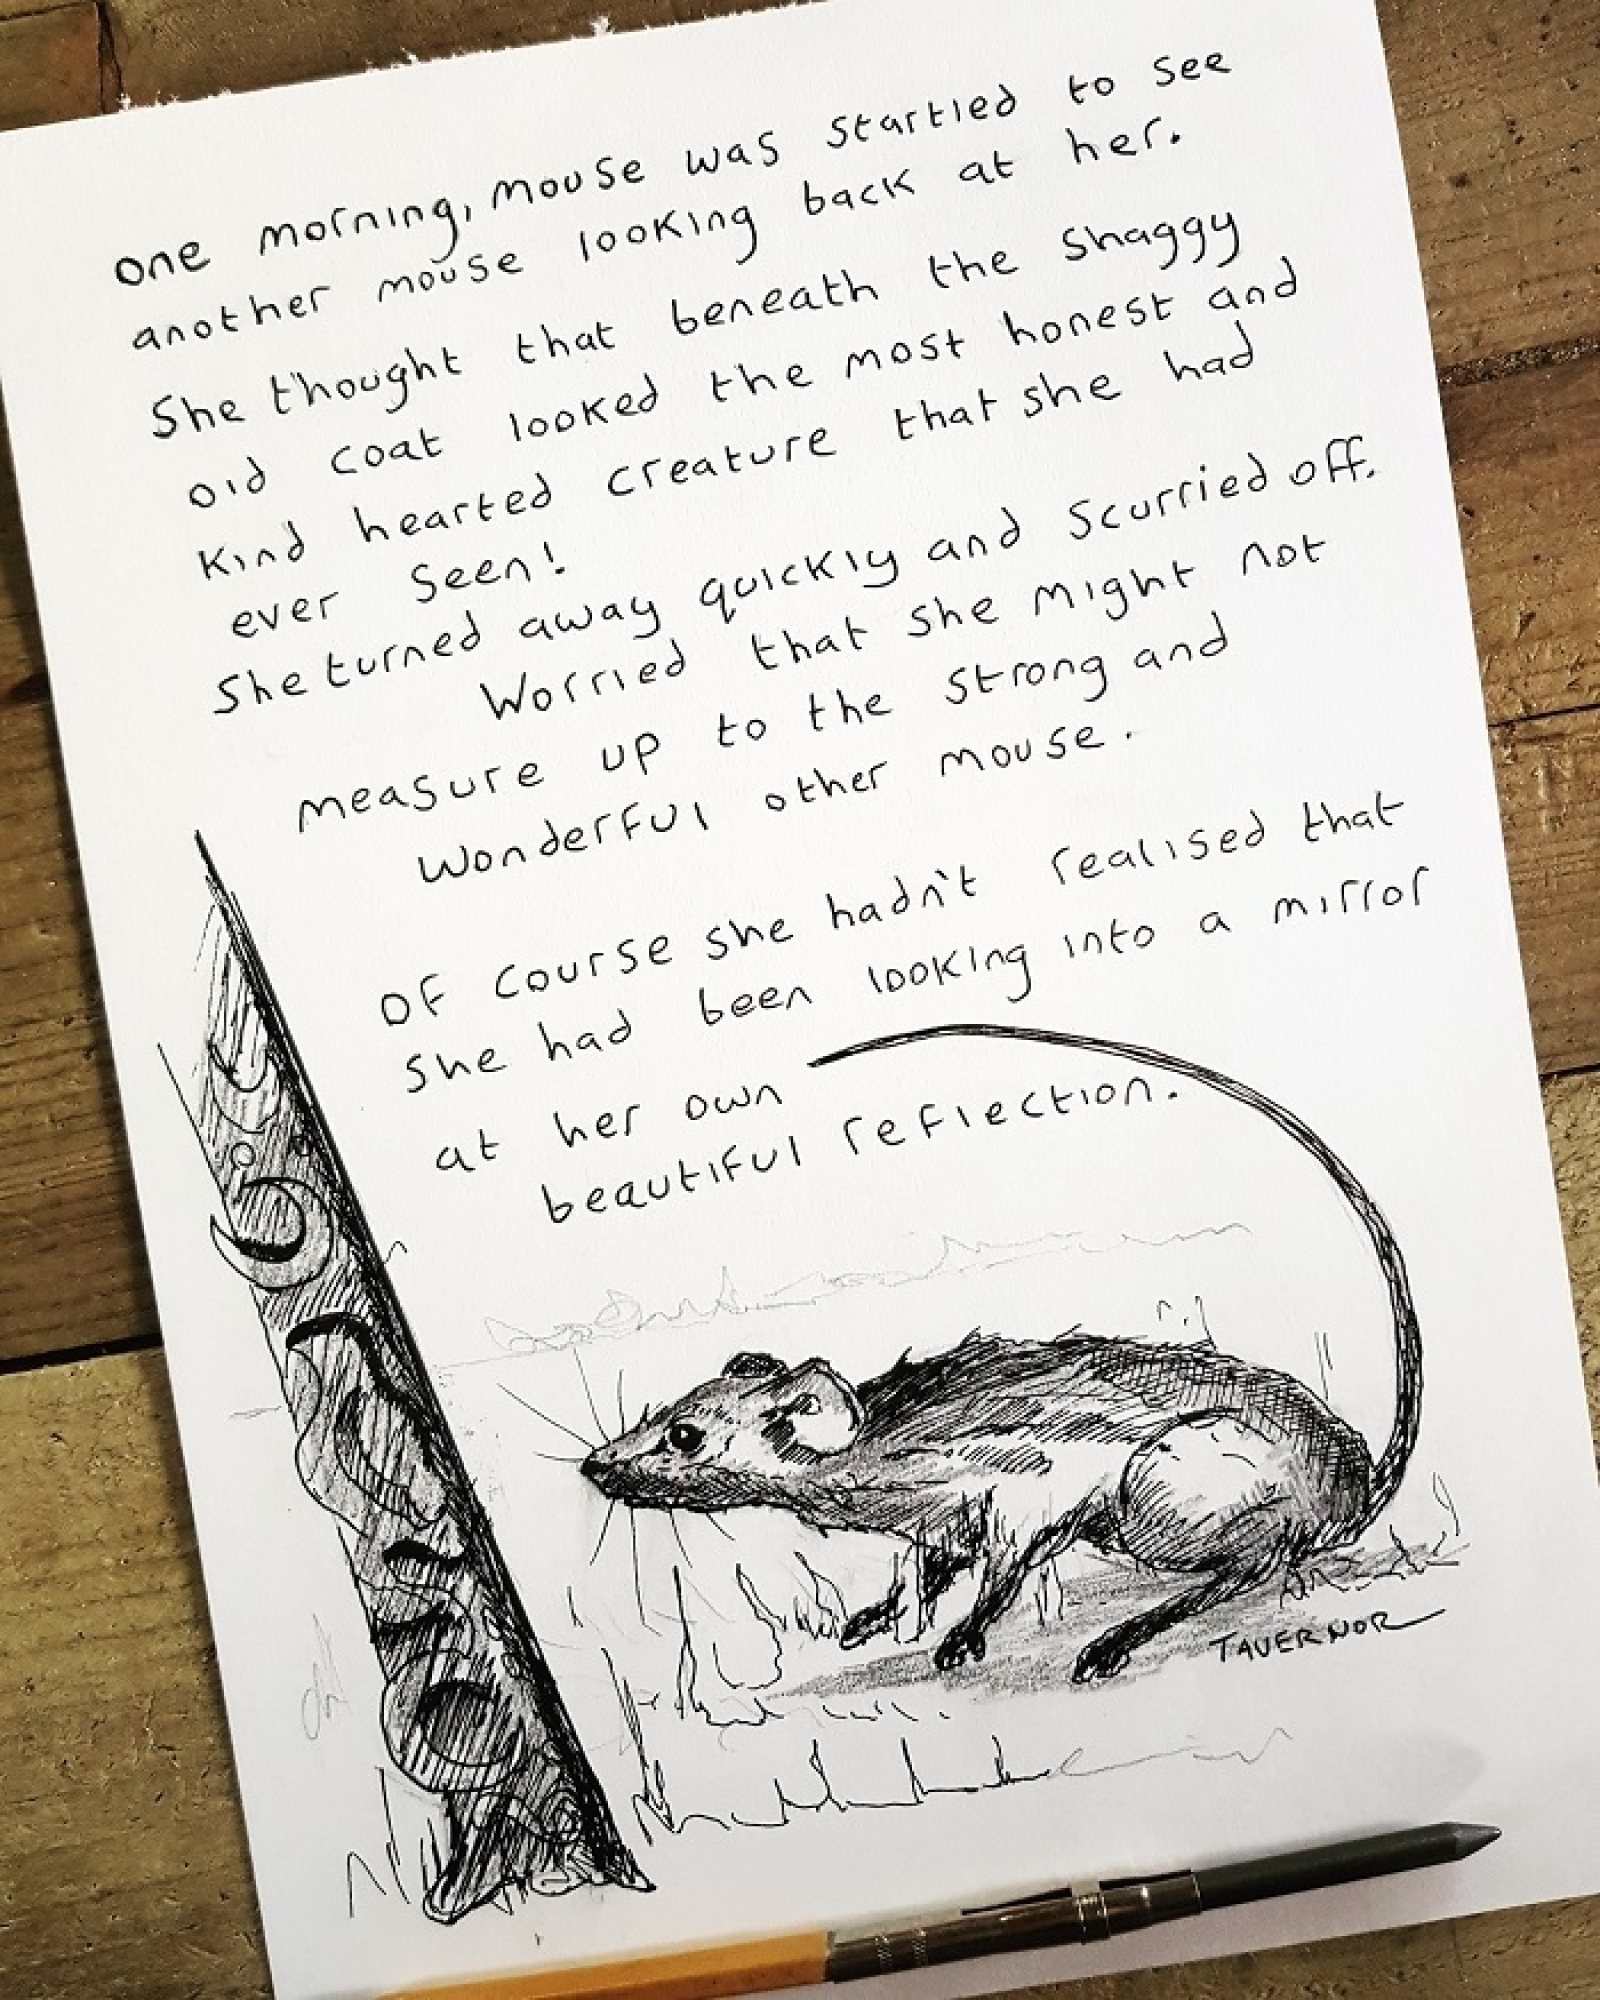 one morning, mouse was startled to see
another mouse looking back at her.
She thought that beneath the shaggy
old coat looked the most honest and
kind hearted creature that she had
ever seen!
She turned away quickly and scurried off.
Worried that she might not
measure up to the strong and
wonderful other mouse.
Of course she hadn't realised that
she had been looking into a mirror
at her own
beautiful reflection.
TAVERNOR